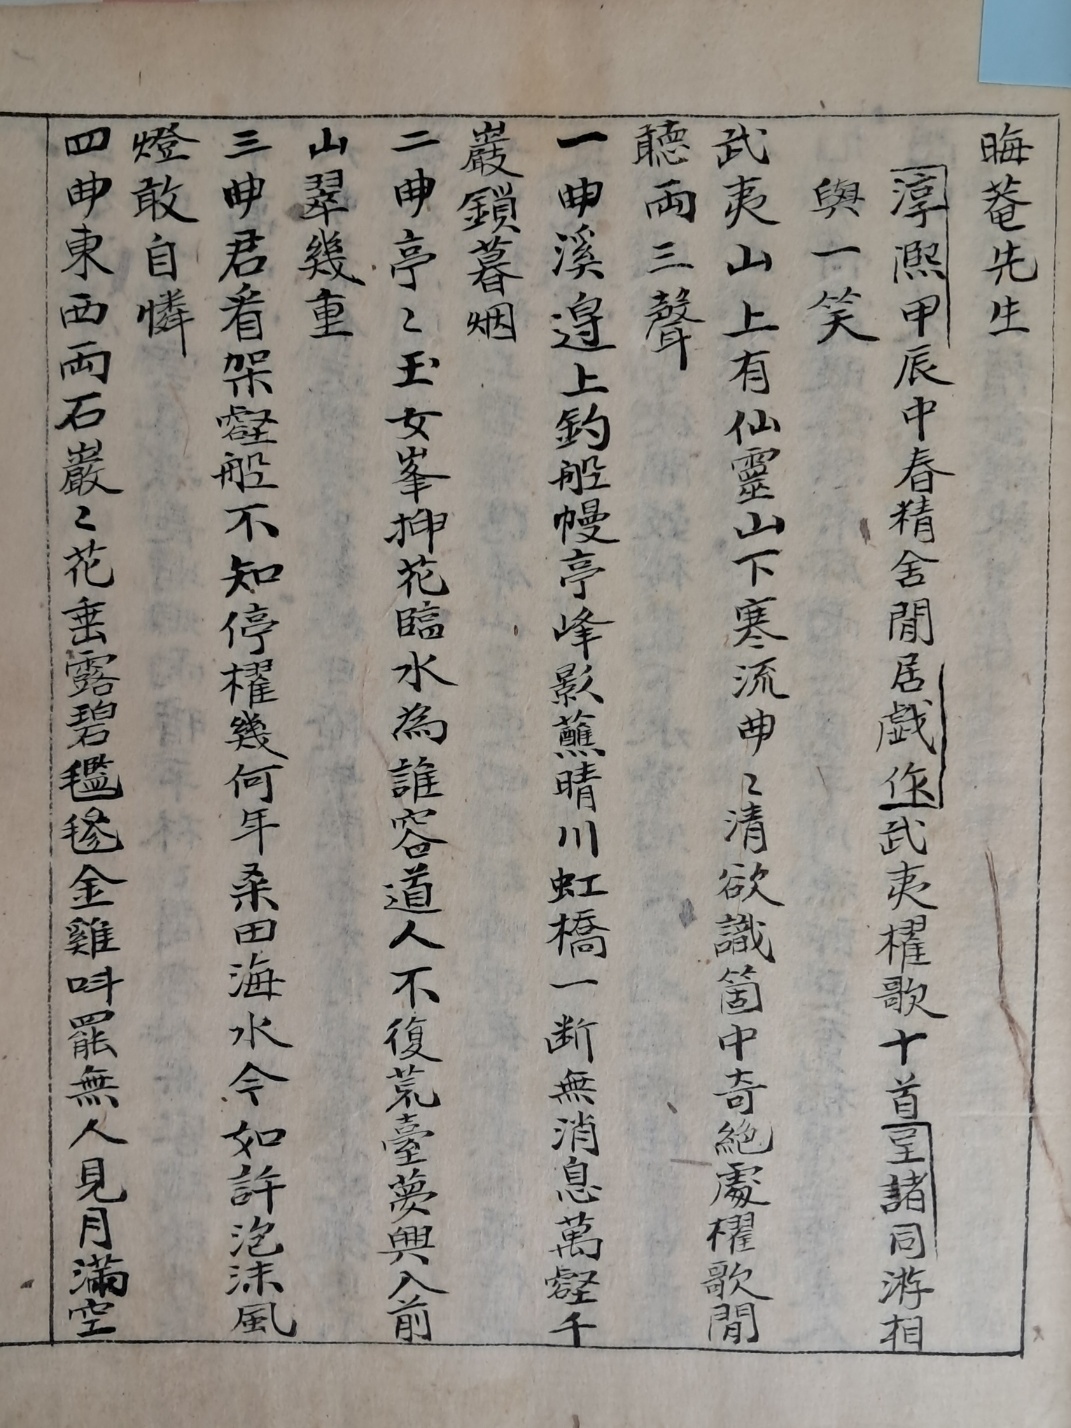 晦菴先生
淳熙甲辰中春精舍閒居戱作武夷櫂歌十首呈諸同游相
與一笑
武夷山上有仙靈山下寒流曲〻清欲識箇中奇絶處櫂歌閒
聽两三聲
一曲溪邉上釣船幔亭峰影蘸晴川虹橋一断無消息萬壑千
巖鎖暮烟
二曲亭〻玉女峯揷花臨水為誰容道人不復荒臺夢興入前
山翠幾重
三曲君看架壑船不知停櫂幾何年桑田海水今如許泡沫風
燈敢自憐
四曲東西两石巖〻花垂露碧㲯毿金雞呌罷無人見月滿空